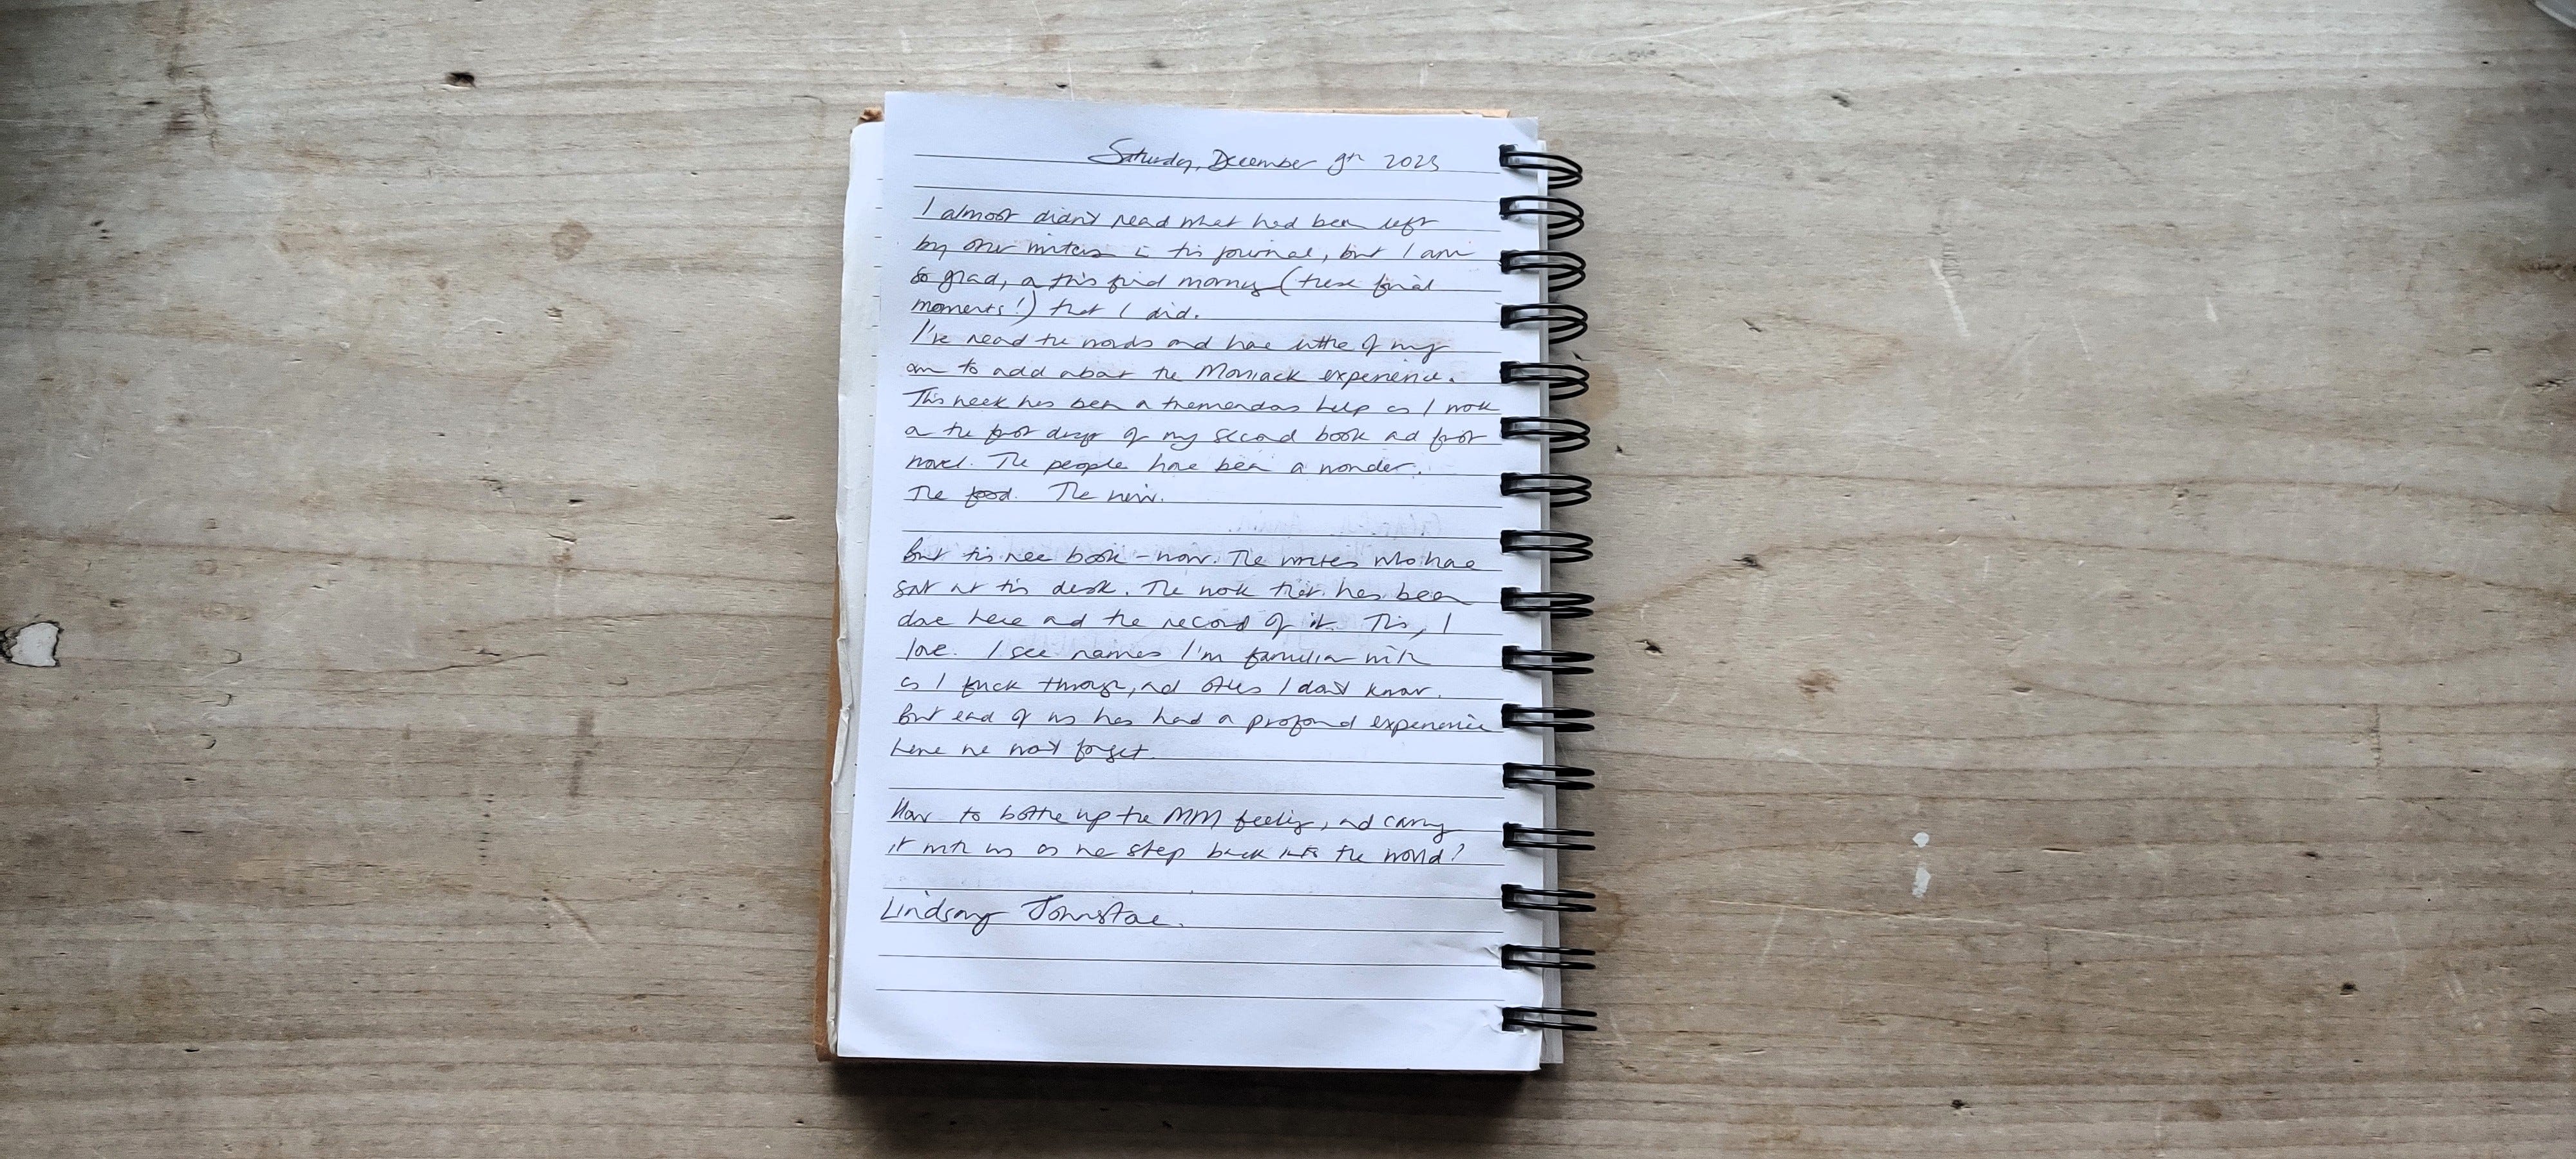 Saturday, December 9th 2023
I almost didn't read what had been left
by other writers in this journal, but I am
so glad, on this final morning (these final
moments!) that I did.
I've read the words and have little of my
own to add about the Moniack experience.
This week has been a tremendous help as I work
on the first draft of my second book and first
novel. The people have been a wonder.
The food. The view.
But this wee book - wow. The writers who have
sat at this desk. The work that has been
done here and the record of it. This, I
love. I see names I'm familiar with
as I flick through, and others I don't know.
But each of us has had a profound experience
here we won't forget.
How to bottle up the MM feeling, and carry
it with us as we step back into the world?
Lindsay Johnstone.